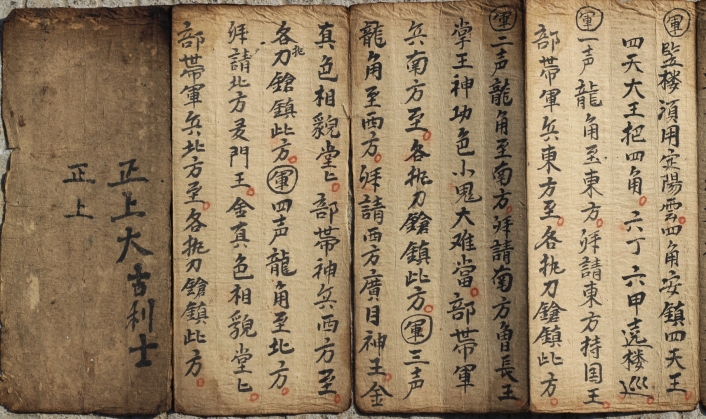 軍監楼湏用安陽雲四角安鎮四天王
四天大王把四角六丁六甲遶楼巡
軍一声龍角至東方拜請東方持国王
部帶軍兵東方至各执刀鎗鎮此方
軍二声龍角至南方拜請南方曾長王
掌王神功色小鬼大难當部帶軍
兵南方至各执刀鎗鎮此方軍三声
龍角至西方拜請西方廣目神王金
真色相貌堂匕部帶神兵西方至
各执刀鎗鎮此方軍四声龍角至北方
拜請北方門王金真色相貌堂匕
部帶軍兵北方至各执刀鎗鎮此方
正上大古利士
正上